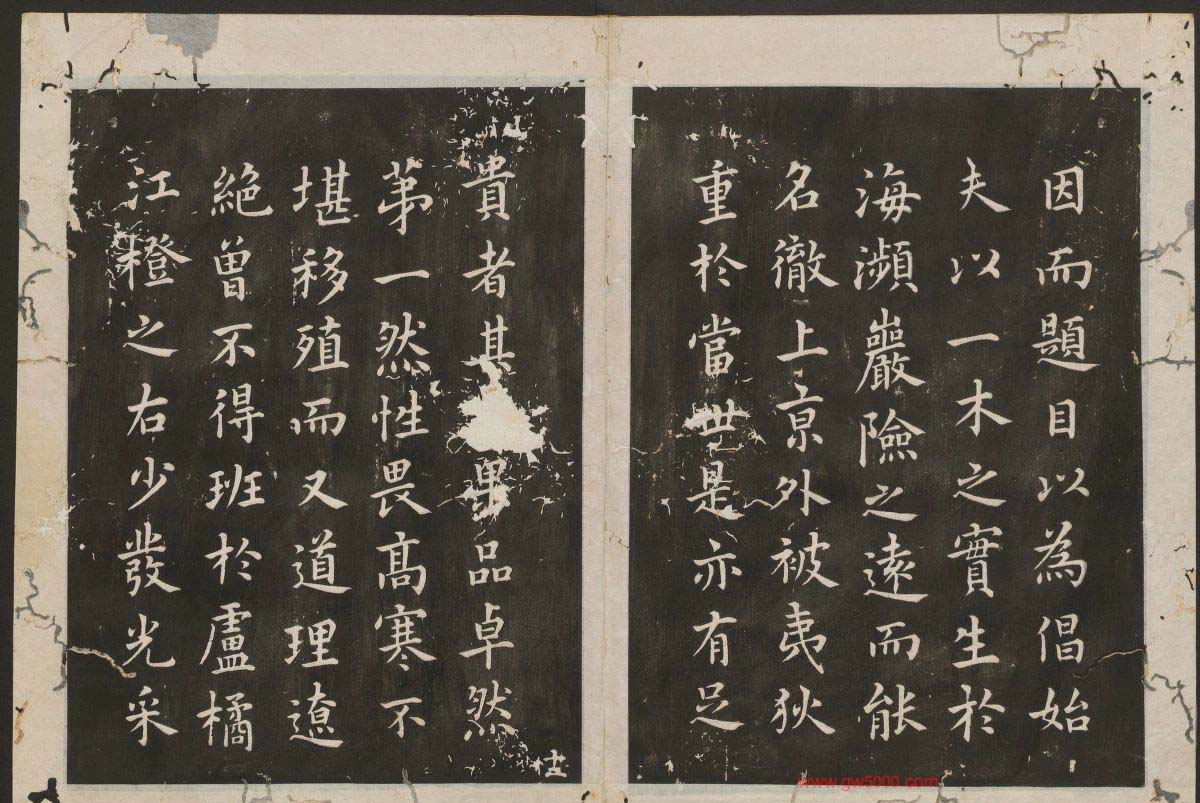 因而題目以為倡始
夫以一木之實生於
海瀕巖險之遠而能
名徹上京外被夷狄
重於當世是亦有足
貴者其果品卓然
第一然性畏高寒不
堪移殖而又道理遼
絕曾不得班於盧橘
江橙之右少發光采
www.gw5000.com